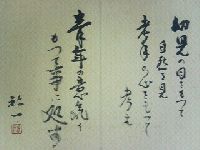 幼児の目をもって
自然を見
老年の心をもって
考え
青年の意気を
もって事に処する